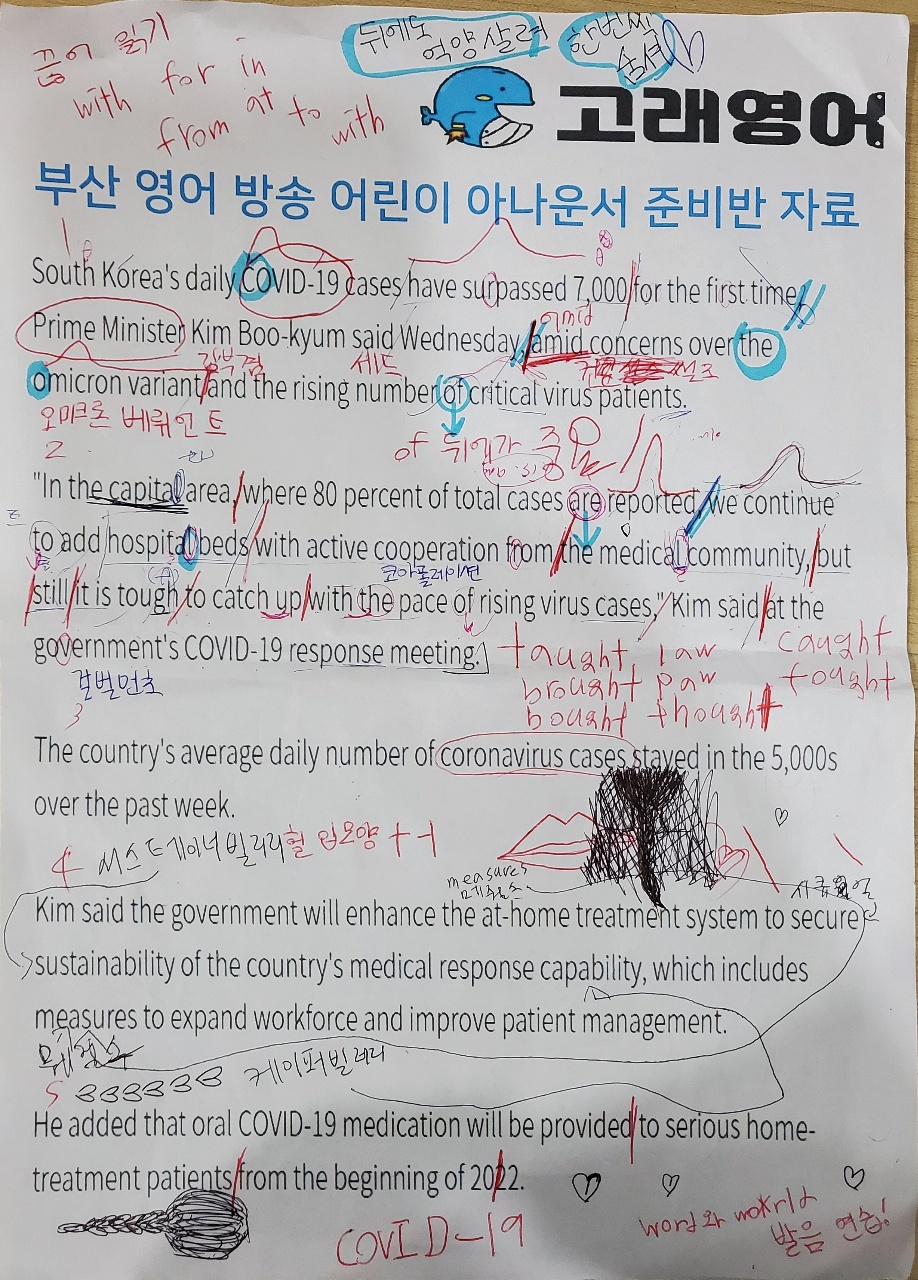 끊어 읽기
with for in
from at to with
뒤에도 억양살려
한번씩
고래영어
부산 영어 방송 어린이 아나운서 준비반 자료
South Korea's daily COVID-19 cases have surpassed 7,000 for the first time,
Prime Minister Kim Boo-kyum said Wednesday, amid concerns over the
omicron variant and the rising number of critical virus patients.
오미크론 베뤼언트
of 뒤에가 중
2
"In the capital area, where 80 percent of total cases are reported, we continue
to add hospital beds with active cooperation from the medical community, but
코아폴레이션
still it is tough to catch up with the pace of rising virus cases," Kim said at the
government's COVID-19 response meeting.
taught law caught
brought paw fought
bought thought
3
The country's average daily number of coronavirus cases stayed in the 5,000s
over the past week.
4 써스테이너빌리리 헐 입모양
measures
Kim said the government will enhance the at-home treatment system to secure
sustainability of the country's medical response capability, which includes
measures to expand workforce and improve patient management.
5 케이퍼빌러리
He added that oral COVID-19 medication will be provided to serious home-
treatment patients from the beginning of 2022.
COVID-19
word와 world
발음 연습!